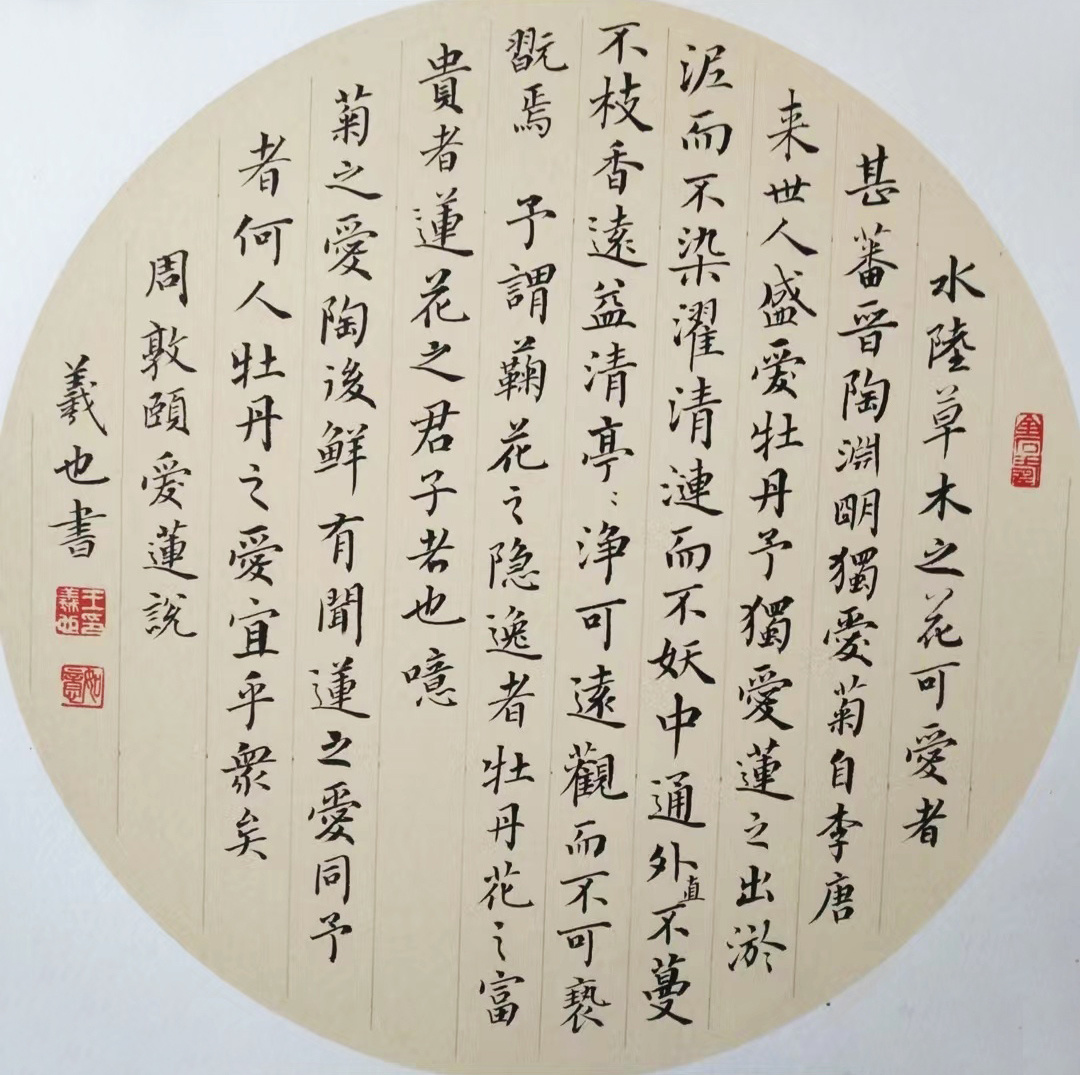 水陸草木之花可愛者
甚蕃晉陶淵明獨愛菊自李唐
来世人盛愛牡丹予獨愛蓮之出淤
泥而不染濯清漣而不妖中通外直不蔓
不枝香遠益清亭〻淨可遠觀而不可褻
翫焉 予謂蘜花之隐逸者牡丹花之富
貴者蓮花之君子者也噫
菊之愛陶後鮮有聞蓮之愛同予
者何人牡丹之愛宜乎衆矣
周敦頤愛蓮説
羲也書